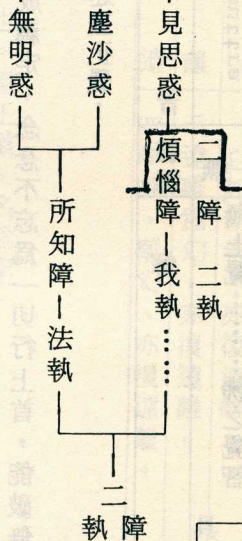 二障 二執
見思惑—煩惱障—我執……
塵沙惑
無明惑
所知障—法執
二障
執